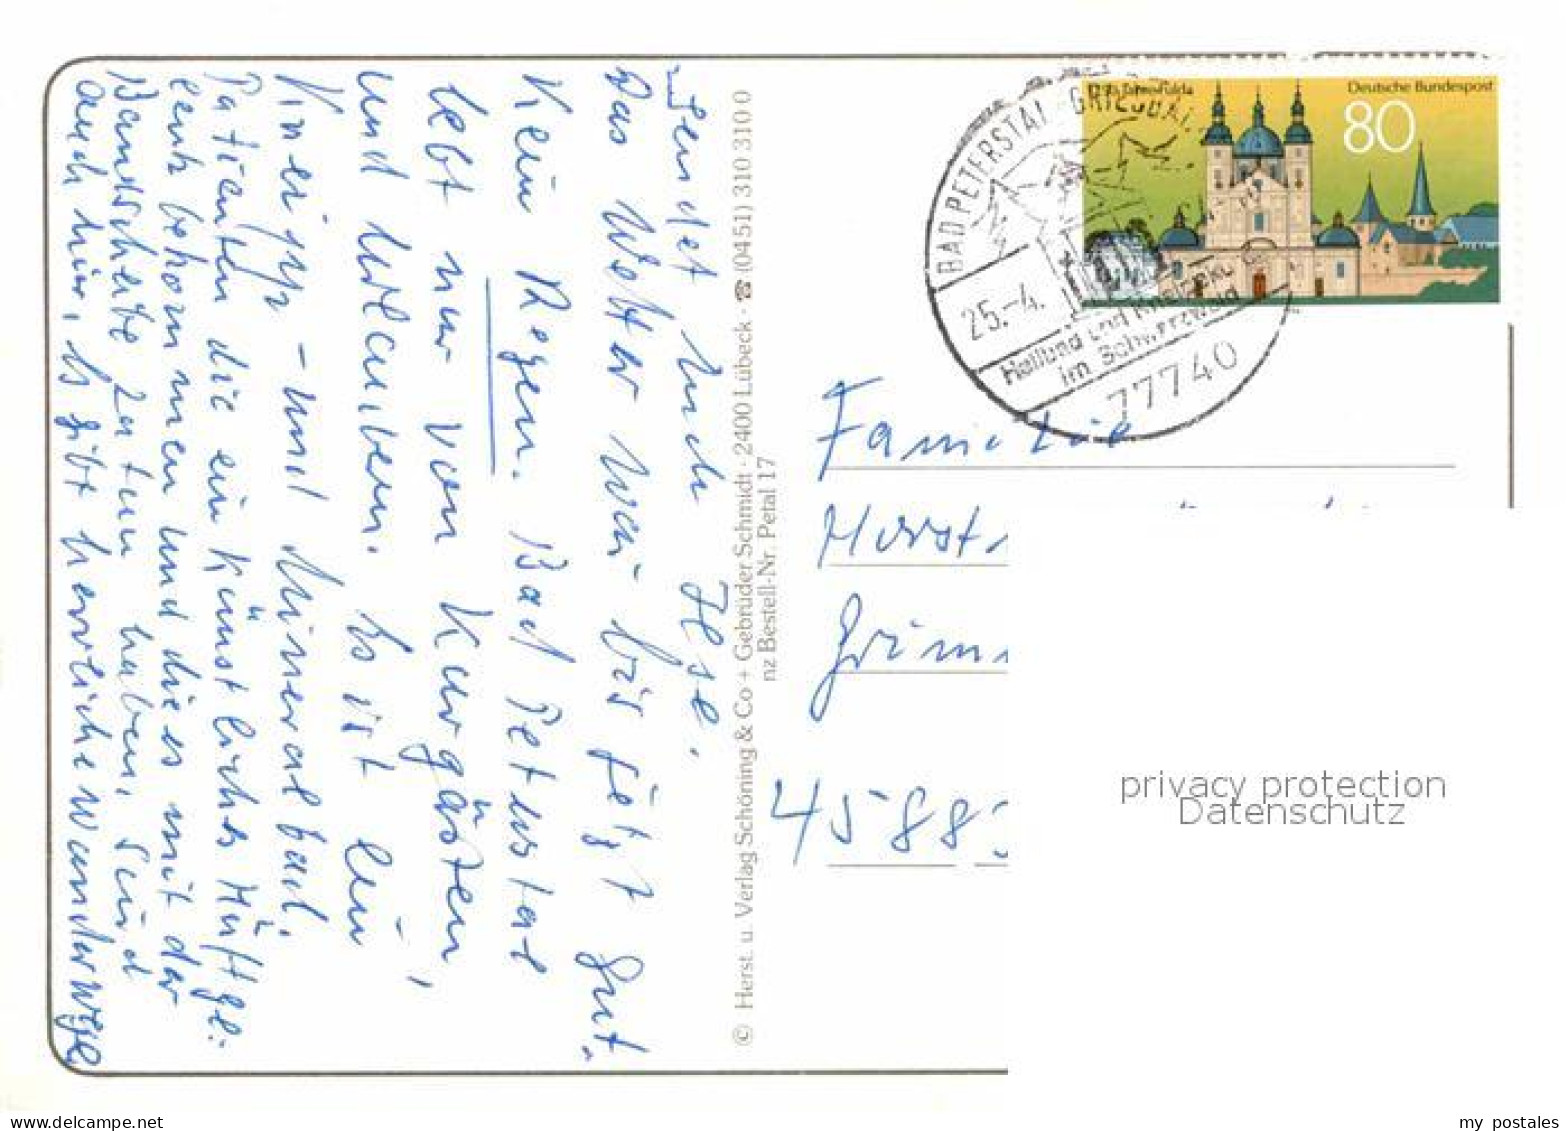 sendet Euch Ilse.
Das Wetter war bis jetzt gut.
Kein Regen. Bad Peterstal
lebt nur von Kurgästen,
und Urlaubern. Es ist ein
Kneipp - und Mineralbad.
Patienten die ein künstliches Hüftge-
lenk bekommen und die es mit der
Bandscheibe zu tun haben, sind
auch hier, Es gibt herrliche Wanderwege
© Herst. u. Verlag Schöning & Co + Gebrüder Schmidt · 2400 Lübeck · ☎ (0451) 310 310 0
nz Bestell-Nr. Petal 17
Deutsche Bundespost
80
BAD PETERSTAL-GRIESBACH
25.-4.
Heilbad und Kneippkurort
im Schwarzwald
77740
Familie
Horst
Grimm
4588
privacy protection
Datenschutz
my postales